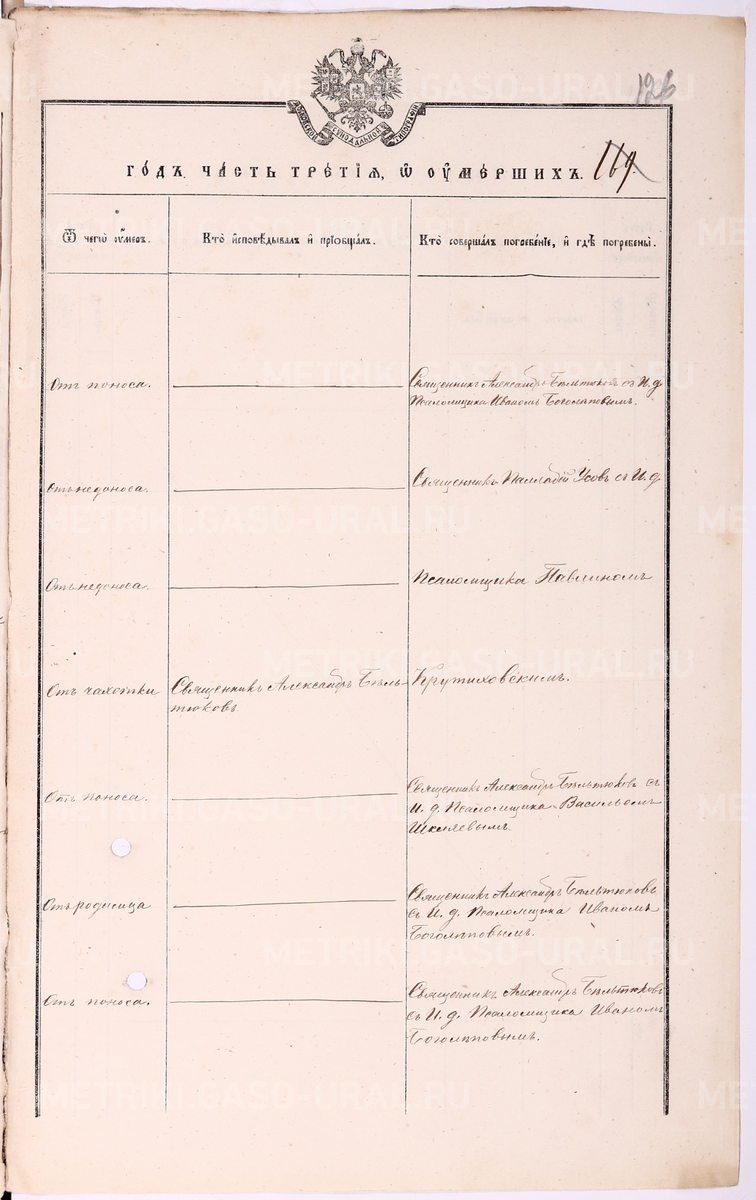 126
МОСКОВСКОЙ СѴНОДАЛЬНОЙ ТИПОГРАФІИ
ГОДЪ. ЧАСТЬ ТРЕТІЯ, Ѿ ОУМЕРШИХЪ. 169
Ѿ чегѡ оумеръ.
Кто исповѣдывалъ и пріобщалъ.
Кто совершалъ погребеніе, и гдѣ погребены.
Отъ поноса.
Священникъ Александръ Бѣльтюковъ съ И. д.
Псаломщика Иваномъ Боголѣповымъ.
Отъ недоноса.
Священникъ Палладій Усовъ съ И. д.
Отъ недоноса.
Псаломщика Павлиномъ
Отъ чахотки
Священникъ Александръ Бѣль-
тюковъ
Крутиховскимъ.
Отъ поноса.
Священникъ Александръ Бѣльтюковъ съ
И. д. Псаломщика Васильемъ
Шкляевымъ.
Отъ родимца
Священникъ Александръ Бѣльтюковъ
съ И. д. Псаломщика Иваномъ
Боголѣповымъ.
Отъ поноса.
Священникъ Александръ Бѣльтюковъ
съ И. д. Псаломщика Иваномъ
Боголѣповымъ.
METRIKI.GASO-URAL.RU